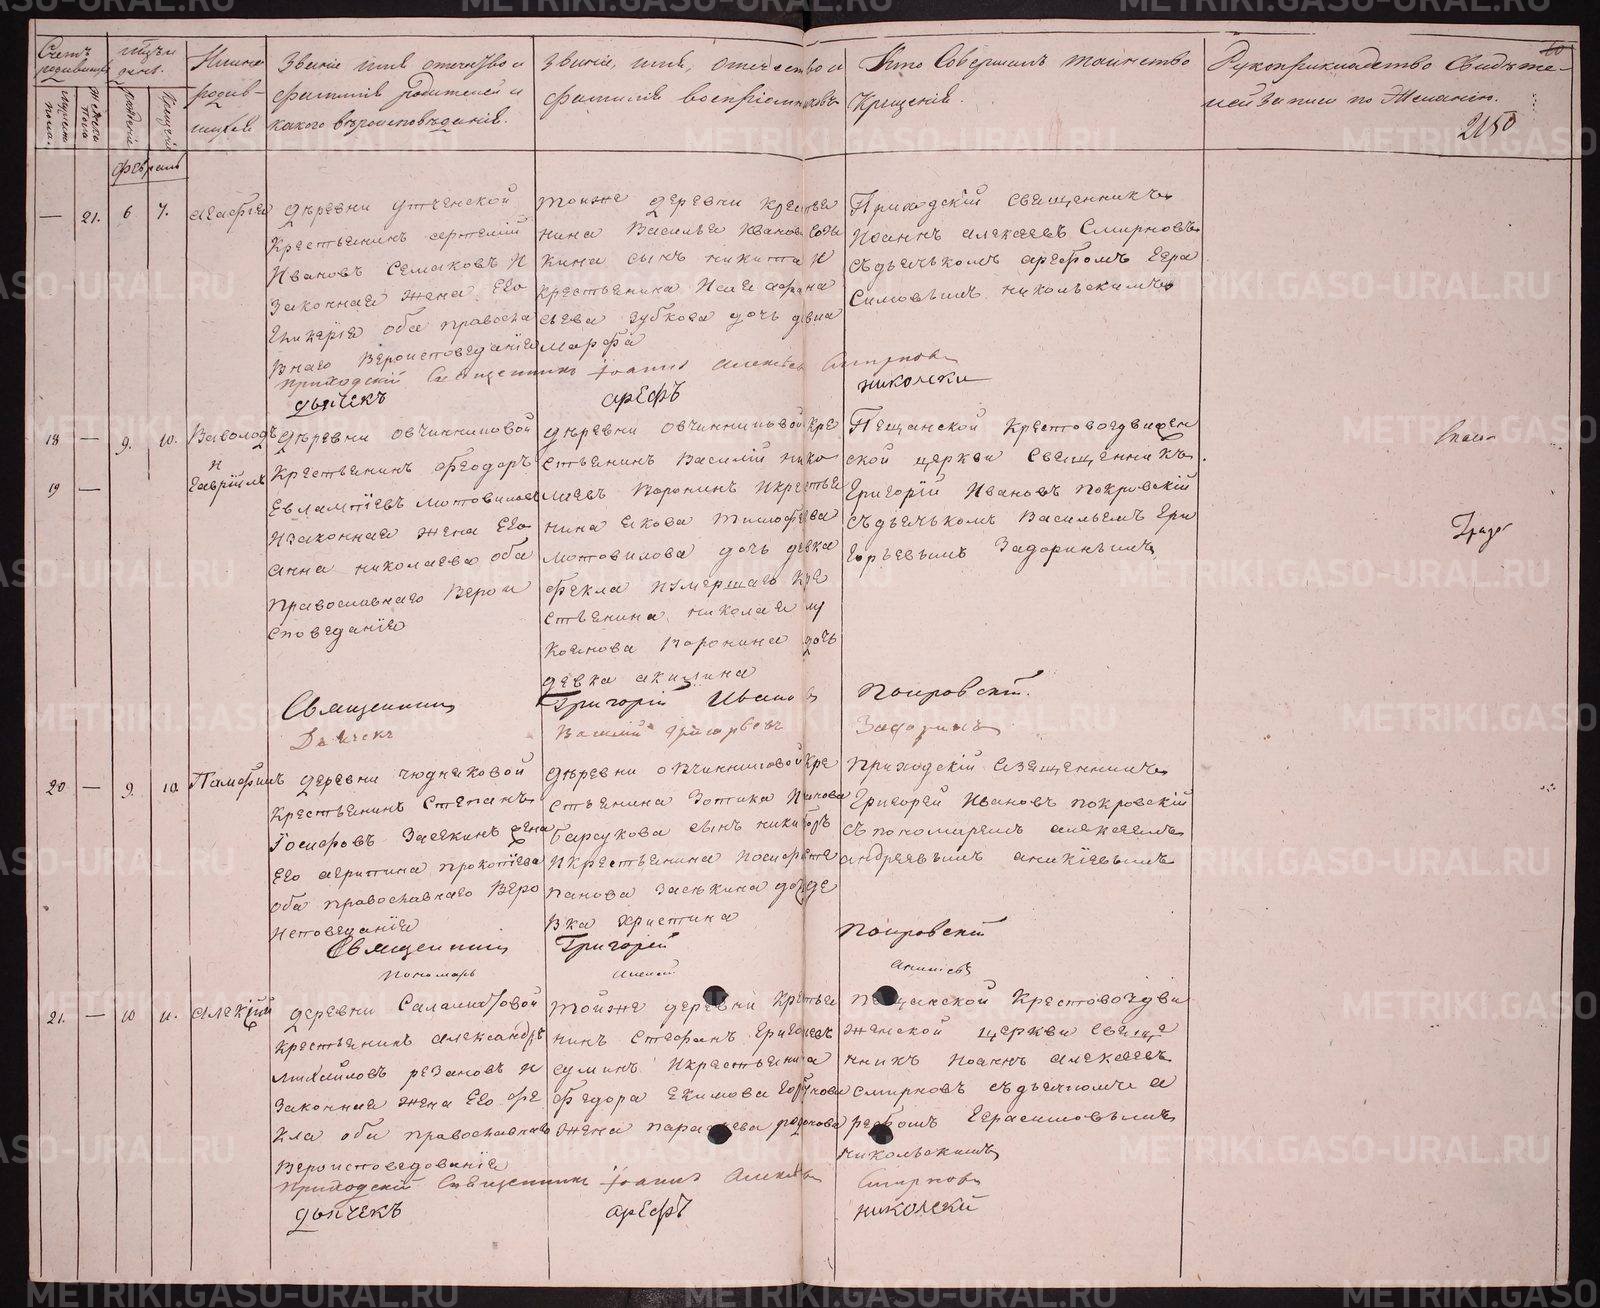 Счетъ родившихся
Мужеск. пола.
Женска пола
Мѣсяцъ и день.
Рожденія
Крещенія
Имена родившихся
Званіе имя отечество и
фамилія Родителей и
какого вѣроисповѣданія.
Званіе, имя, отечество и
фамилія воспріемниковъ
Кто Совершилъ таинство
Крещенія.
Рукоприкладство Свидѣте-
лей Записи по Желанію.
10
2150
Февраль
— 21. 6 7. Агафия
деревни утченской
Крестьянинъ
Ивановъ Семаковъ И
Законная Жена Его
оба правосла
Внаго Вероисповеданія
тойже деревни крестья
нина Василья Иванова
Кина сынъ никита И
крестьянина
сьева Зубкова дочь девка
Марфа
Приходскій Священникъ
Иоаннъ Алексеевъ Смирновъ
Съдьячькомъ арефомъ Гера
Симовымъ никольскимъ
Приходскій Священникъ Іоаннъ Алексѣевъ Смирновъ
дьячекъ арефъ николски
18 — 9. 10. Всеволодъ
И
19 — Гавріилъ
деревни овчинниковой
Крестьянинъ Феодоръ
Евлампіевъ Мотовиловъ
Изаконная Жена Его
анна николаева оба
Православнаго Верои
споведанія
деревни овчинниковой Кре
стьянинъ Василій нико
лаевъ Воронинъ Икрестья
нина якова тимофеева
мотовилова дочь девка
фекла Иумершаго кре
стьянина николая лу
Воронина дочь
девка акилина
Пещанской Крестовоздвижен
ской церкви Священникъ
Григорій Ивановъ Покровскій
Съдьячькомъ Васильемъ Гри
горьевымъ Задоринымъ
Священникъ Григорій Ивановъ Покровскій.
Дьячекъ Василій Григорьевъ Задоринъ
20 — 9. 10. Памфилъ
деревни чюдняковой
Крестьянинъ Степанъ
Іосифовъ Засекинъ Жена
Его агрипина прокопіева
оба православнаго Веро
исповеданія
деревни овчинниковой Кре
стьянина Зотика Иванова
Барсукова сынъ никифоръ
Икрестьянина Иосифа сте
панова Засекина дочь де
Вка Христина
Приходскій Священникъ
Григорей Ивановъ покровскій
Съ пономаремъ алексеемъ
андреевымъ аникіевымъ
Священникъ Григорей Покровскій
Пономарь Алексей аникіевъ
21. — 10 11. Алексій
деревни Саламатовой
Крестьянинъ александръ
Михайловъ резановъ И
Законная Жена Его фе
Кла оба православнаго
Вероисповедования
тойже деревни Крестья
нинъ Стефанъ Григорьевъ
суминъ Икрестьянина
федора Екимова Горбунова
Жена параскева родионова
пещанской Крестовоздви
женской церкви Свяще
нникъ Иоаннъ алексеевъ
Смирновъ съдьячкомъ а
рефомъ Герасимовымъ
никольскимъ
Приходскій Священникъ Іоаннъ Алексѣевъ Смирновъ
дьячекъ арефъ николский